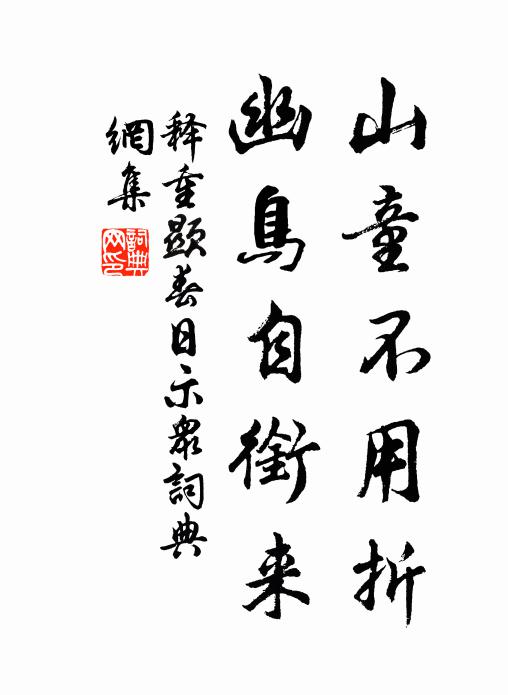 山童不用折
幽鳥自銜来
释重顯春日示衆詞典
網集
詞典網印